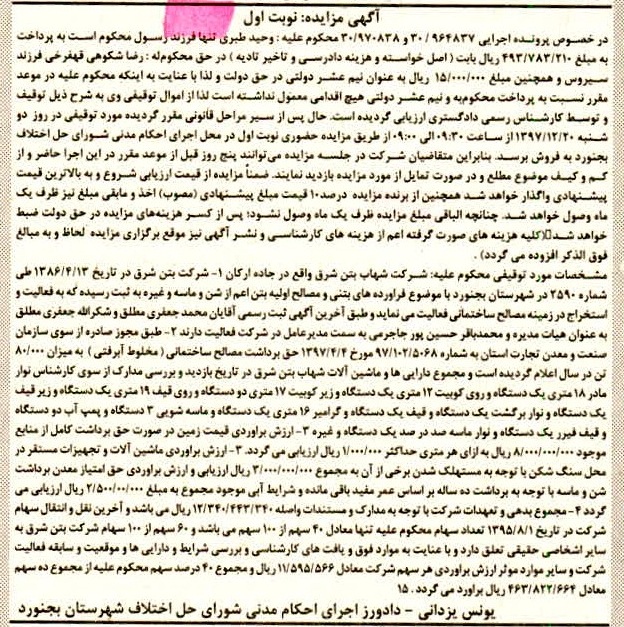 آگهی مزایده: نوبت اول
در خصوص پرونده اجرایی ۹۶۴۸۳۷ / ۳۰ و ۳۰/۹۷۰۸۳۸ محکوم علیه : وحید طبری تنها فرزند رسول محکوم است به پرداخت
به مبلغ ۴۹۳/۷۸۳/۲۱۰ ریال بابت ( اصل خواسته و هزینه دادرسی و تاخیر تادیه ) در حق محکوم‌له : رضا شکوهی قهفرخی فرزند
سیروس و همچنین مبلغ ۱۵/۰۰۰/۰۰۰ ریال به عنوان نیم عشر دولتی در حق دولت و لذا با عنایت به اینکه محکوم علیه در موعد
مقرر نسبت به پرداخت محکوم‌به و نیم عشر دولتی هیچ اقدامی معمول نداشته است لذا از اموال توقیفی وی به شرح ذیل توقیف
و توسط کارشناس رسمی دادگستری ارزیابی گردیده است. حال پس از سیر مراحل قانونی مقرر گردیده مورد توقیفی در روز دو
شنبه ۱۳۹۷/۱۲/۲۰ از ساعت ۰۹:۳۰ الی ۰۹:۰۰ از طریق مزایده حضوری نوبت اول در محل اجرای احکام مدنی شورای حل اختلاف
بجنورد به فروش برسد. بنابراین متقاضیان شرکت در جلسه مزایده می‌توانند پنج روز قبل از موعد مقرر در این اجرا حاضر و از
کم و کیف موضوع مطلع و در صورت تمایل از مورد مزایده بازدید نمایند. ضمناً مزایده از قیمت ارزیابی شروع و به بالاترین قیمت
پیشنهادی واگذار خواهد شد همچنین از برنده مزایده درصد۱۰ قیمت مبلغ پیشنهادی (مصوب) اخذ و مابقی مبلغ نیز ظرف یک
ماه وصول خواهد شد. چنانچه الباقی مبلغ مزایده ظرف یک ماه وصول نشود؛ پس از کسر هزینه‌های مزایده در حق دولت ضبط
خواهد شد.(کلیه هزینه های صورت گرفته اعم از هزینه های کارشناسی و نشر آگهی نیز موقع برگزاری مزایده لحاظ و به مبالغ
فوق الذکر افزوده می گردد) .
مشخصات مورد توقیفی محکوم علیه: شرکت شهاب بتن شرق واقع در جاده ارکان ۱- شرکت بتن شرق در تاریخ ۱۳۸۶/۴/۱۳ طی
شماره ۲۵۹۰ در شهرستان بجنورد با موضوع فراورده های بتنی و مصالح اولیه بتن اعم از شن و ماسه و غیره به ثبت رسیده که به فعالیت و
استخراج در زمینه مصالح ساختمانی فعالیت می نماید و طبق آخرین آگهی ثبت رسمی آقایان محمد جعفری مطلق و شکرالله جعفری مطلق
به عنوان هیات مدیره و محمدباقر حسین پور جاجرمی به سمت مدیرعامل در شرکت فعالیت دارند ۲- طبق مجوز صادره از سوی سازمان
صنعت و معدن تجارت استان به شماره ۹۷/۱۰۲/۵۰۶۸ مورخ ۱۳۹۷/۴/۴ حق برداشت مصالح ساختمانی ( مخلوط آبرفتی ) به میزان ۸۰/۰۰۰
تن در سال اعلام گردیده است و مجموع دارایی ها و ماشین آلات شهاب بتن شرق در تاریخ بازدید و بررسی مدارک از سوی کارشناس نوار
مادر ۱۸ متری یک دستگاه و روی کوبیت ۱۲ متری یک دستگاه و زیر کوبیت ۱۷ متری دو دستگاه و روی قیف ۱۹ متری یک دستگاه و زیر قیف
یک دستگاه و نوار برگشت یک دستگاه و قیف یک دستگاه و گرامیر ۱۶ متری یک دستگاه و ماسه شویی ۳ دستگاه و پمپ آب دو دستگاه
و قیف فیرر یک دستگاه و نوار ماسه صد در صد یک دستگاه و غیره ۳- ارزش براوردی قیمت زمین در صورت حق برداشت کامل از منابع
موجود ۸/۰۰۰/۰۰۰/۰۰۰ ریال به ازای هر متری حداکثر ۱/۰۰۰/۰۰۰ ریال ارزیابی می گردد. ۳- ارزش براوردی ماشین آلات و تجهیزات مستقر در
محل سنگ شکن با توجه به مستهلک شدن برخی از آن به مجموع ۳/۰۰۰/۰۰۰/۰۰۰ ریال ارزیابی و ارزش براوردی حق امتیاز معدن برداشت
شن و ماسه با توجه به برداشت ده ساله بر اساس عمر مفید باقی مانده و شرایط آبی موجود مجموع به مبلغ ۲/۵۰۰/۰۰/۰۰۰ ریال ارزیابی می
گردد ۴- مجموع بدهی و تعهدات شرکت با توجه به مدارک و مستندات واصله ۱۲/۳۴۰/۴۴۳/۳۴۰ ریال می باشد و آخرین نقل و انتقال سهام
شرکت در تاریخ ۱۳۹۵/۸/۱ تعداد سهام محکوم علیه تنها معادل ۴۰ سهم از ۱۰۰ سهم می باشد و ۶۰ سهم از ۱۰۰ سهام شرکت بتن شرق به
سایر اشخاصی حقیقی تعلق دارد و با عنایت به موارد فوق و یافت های کارشناسی و بررسی شرایط و دارایی ها و موقعیت و سابقه فعالیت
شرکت و سایر موارد موثر ارزش براوردی هر سهم شرکت معادل ۱۱/۵۹۵/۵۶۶ ریال و مجموع ۴۰ درصد سهم محکوم علیه از مجموع ده سهم
معادل ۴۶۳/۸۲۲/۶۶۴ ریال براورد می گردد . ۱۵
یونس یزدانی - دادورز اجرای احکام مدنی شورای حل اختلاف شهرستان بجنورد